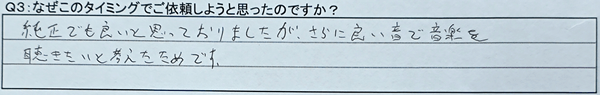 Q3:なぜこのタイミングでご依頼しようと思ったのですか?
純正でも良いと思っておりましたが、さらに良い音で音楽を
聴きたいと考えたためです。